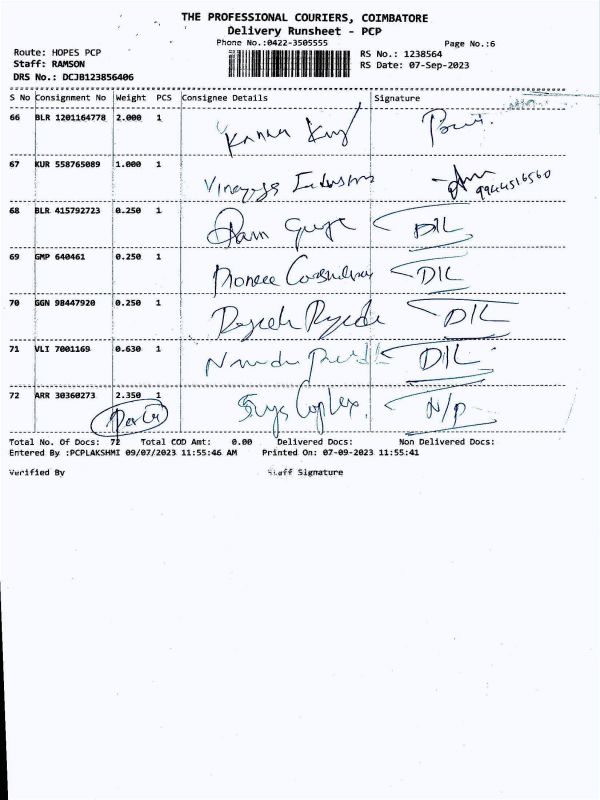 THE PROFESSIONAL COURIERS, COIMBATORE
Delivery Runsheet - PCP
Phone No.:0422-3505555 Page No.:6
Route: HOPES PCP RS No.: 1238564
Staff: RAMSON RS Date: 07-Sep-2023
DRS No.: DCJB123856406
S No Consignment No Weight PCS Consignee Details Signature
66 BLR 1201164778 2.000 1 Kannan
67 KUR 558765089 1.000 1 Vinayaga Industries 9944516560
68 BLR 415792723 0.250 1 Ram D/L
69 GMP 640461 0.250 1 D/L
70 GGN 98447920 0.250 1 D/L
71 VLI 7001169 0.630 1 D/L
72 ARR 30360273 2.350 1 N/P
Total No. Of Docs: 72 Total COD Amt: 0.00 Delivered Docs: Non Delivered Docs:
Entered By :PCPLAKSHMI 09/07/2023 11:55:46 AM Printed On: 07-09-2023 11:55:41
Verified By Staff Signature